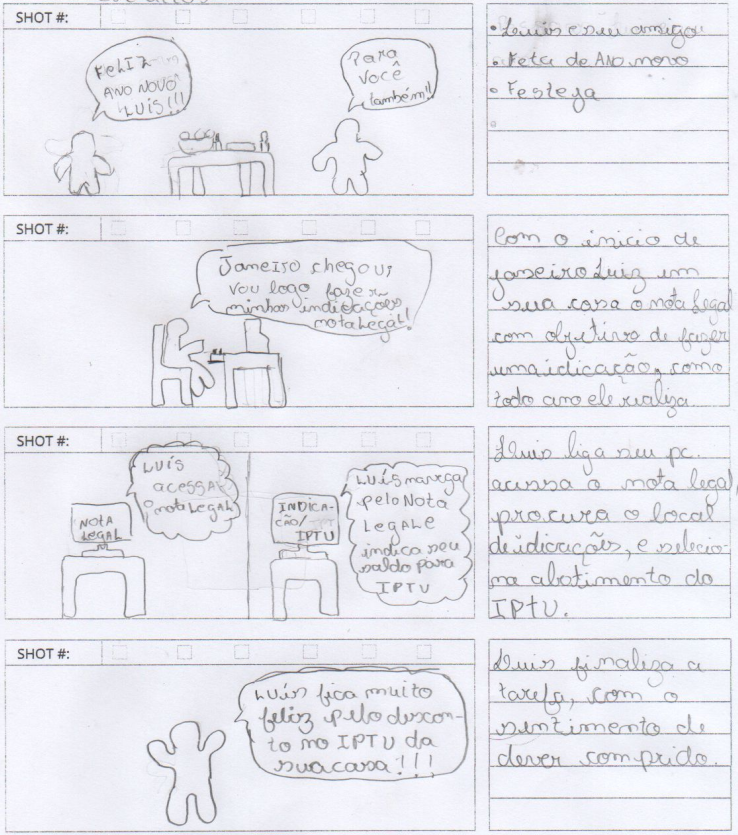 SHOT #:
FELIZ
ANO NOVO
LUIS!!!
Para
você
também!!
• Luis e seu amigo
• Feta de Ano novo
• Festeja
SHOT #:
Janeiro chegou,
vou logo fazer
minhas indicações
nota legal!
Com o inicio de
janseiro Luiz em
sua casa o nota legal
com objetivo de fazer
uma idicação, como
todo ano ele realiza
SHOT #:
NOTA
LEGAL
LUÍS
acessa
o nota LEGAL
INDICA-
CÃO/
IPTU
LUÍS navega
pelo Nota
LEGAL e
indica seu
saldo para
IPTU
Luis liga seu pc.
acessa o nota legal,
procura o local
de idicações, e selecio-
na abatimento do
IPTU.
SHOT #:
LUÍS fica muito
feliz pelo descon-
to no IPTU da
sua casa!!!
Luis finaliza a
tarefa, com o
sentimento de
dever comprido.